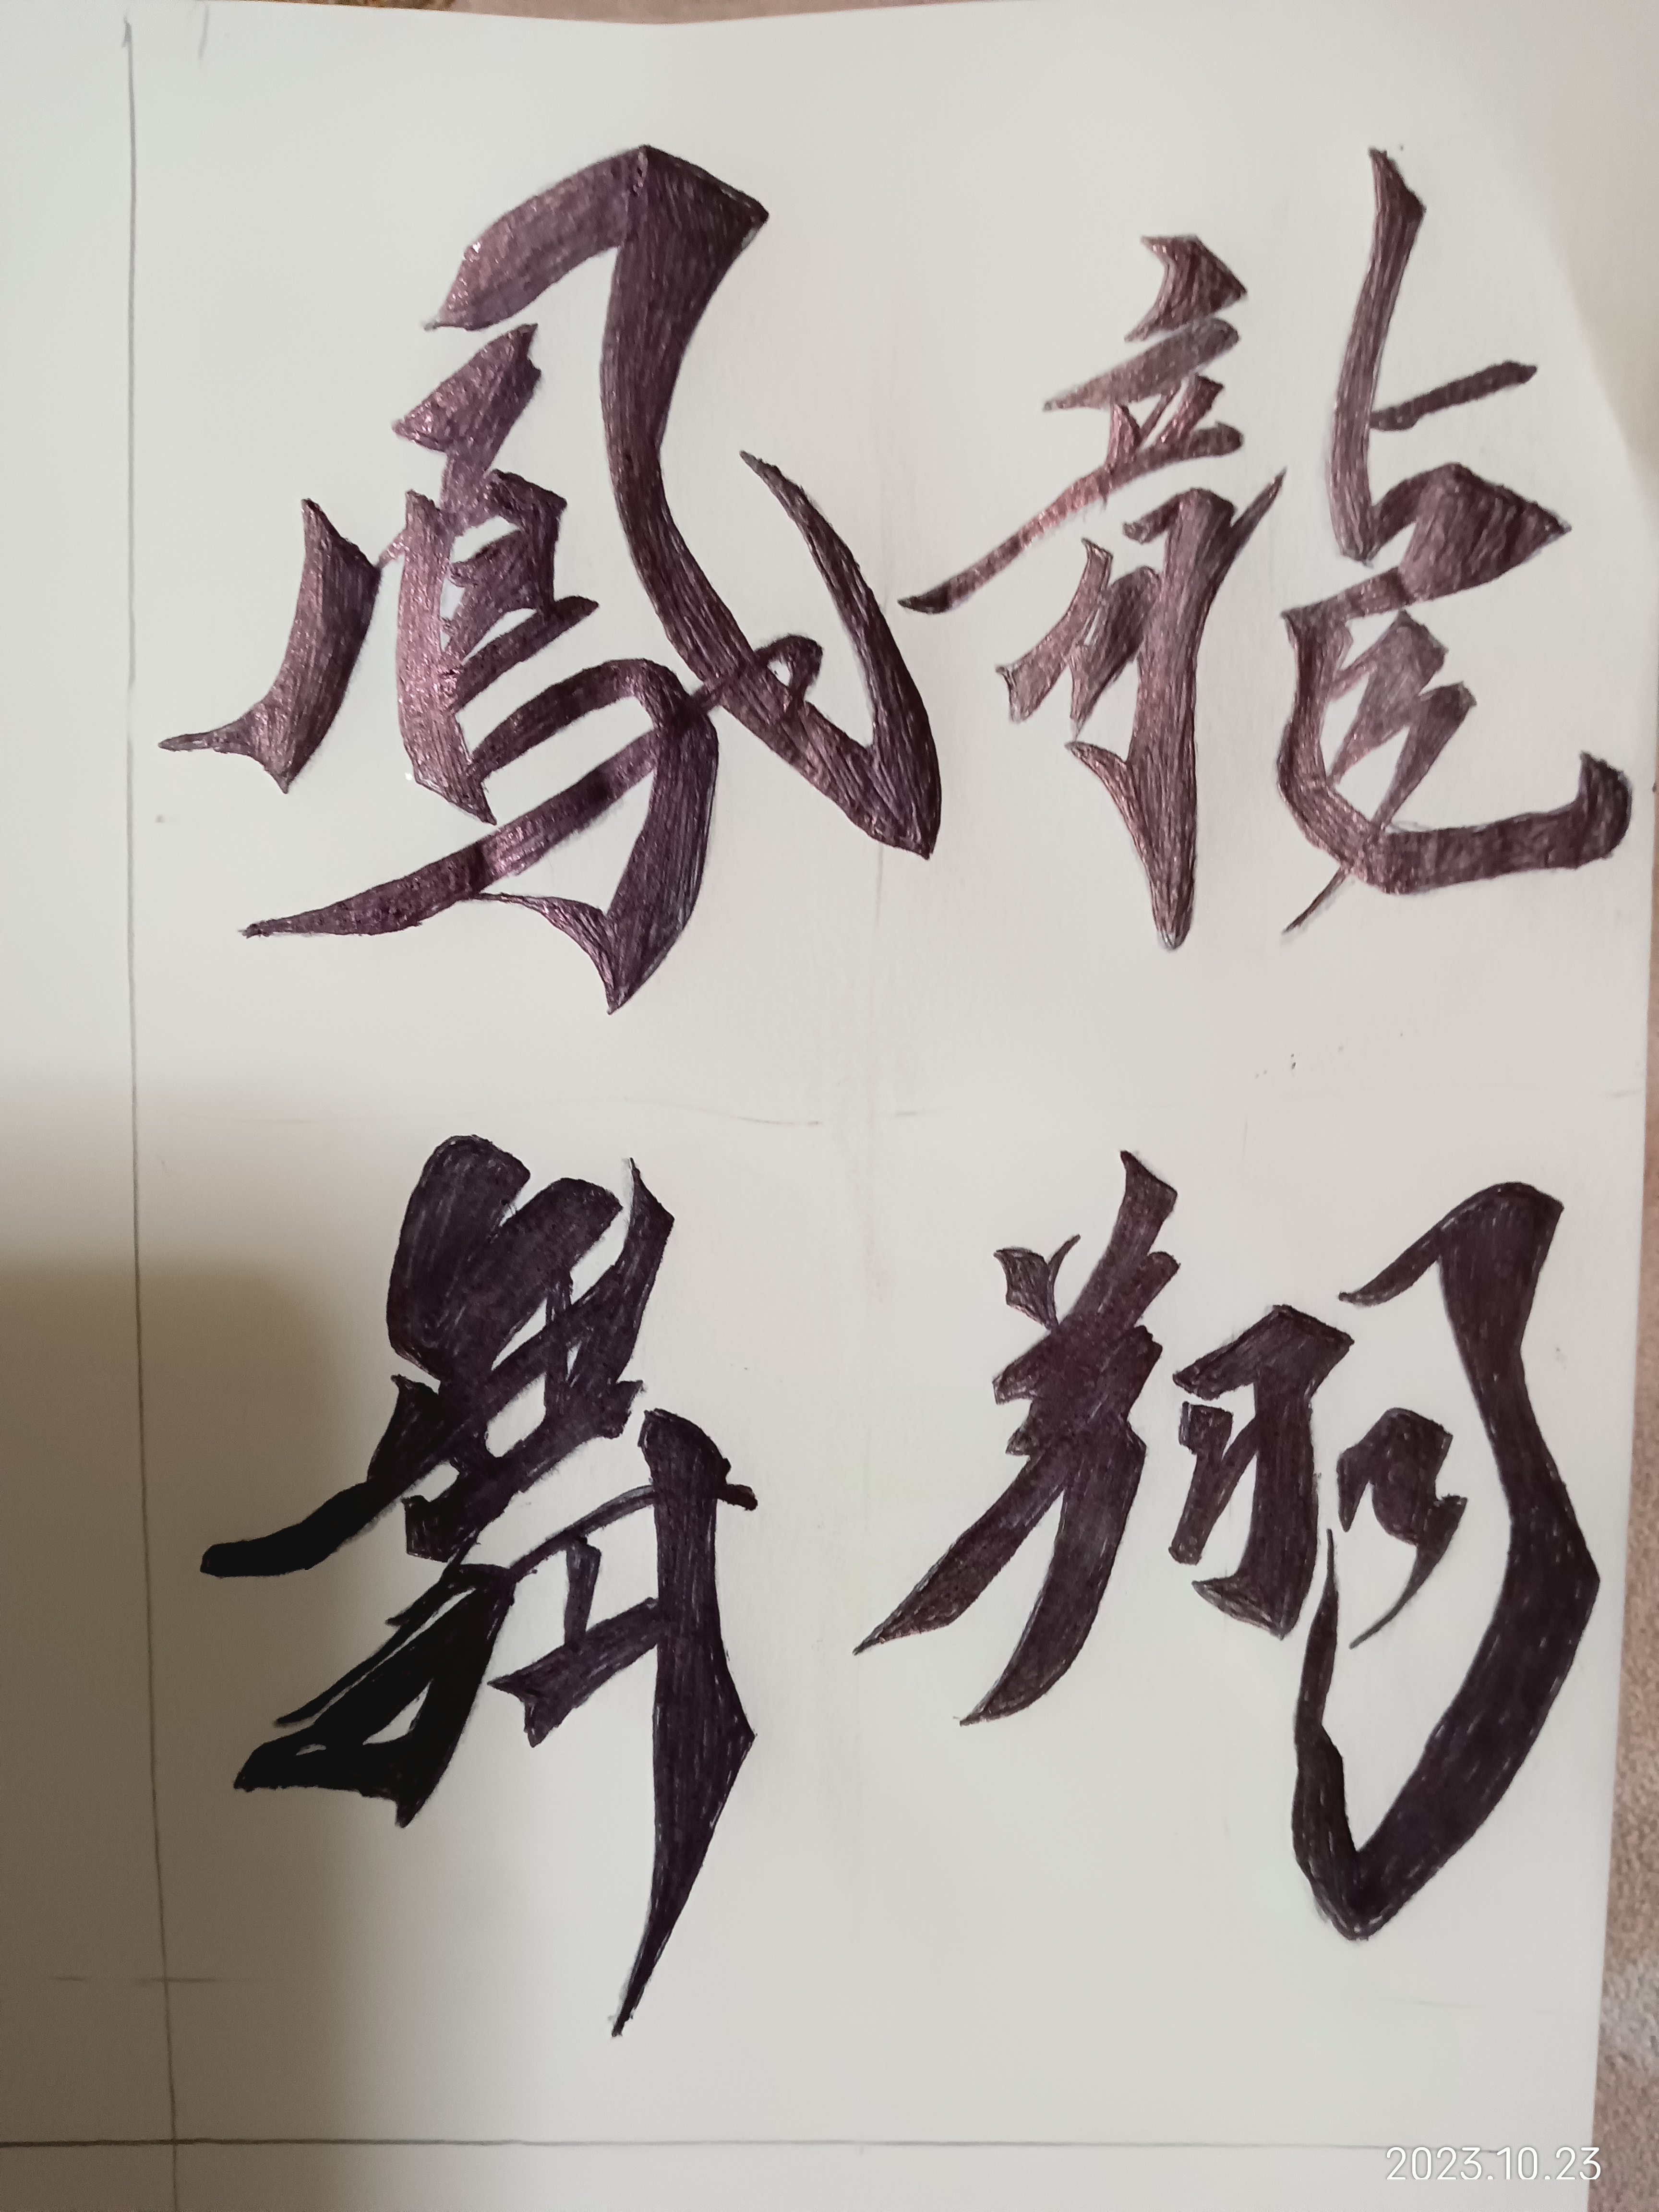 龍翔
鳳舞
2023.10.23